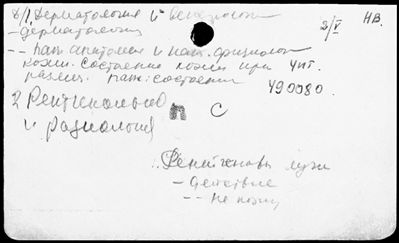 8/1 Дерматология и венерология
3/V НВ.
- дерматология
-- пат. анатомия и пат. физиология
кожи. Состояние кожи при
разл. пат. состояни
490080.
2 Рентгенолог
и радиология
С
Рентгеновы лучи
- действие
-- на кожу